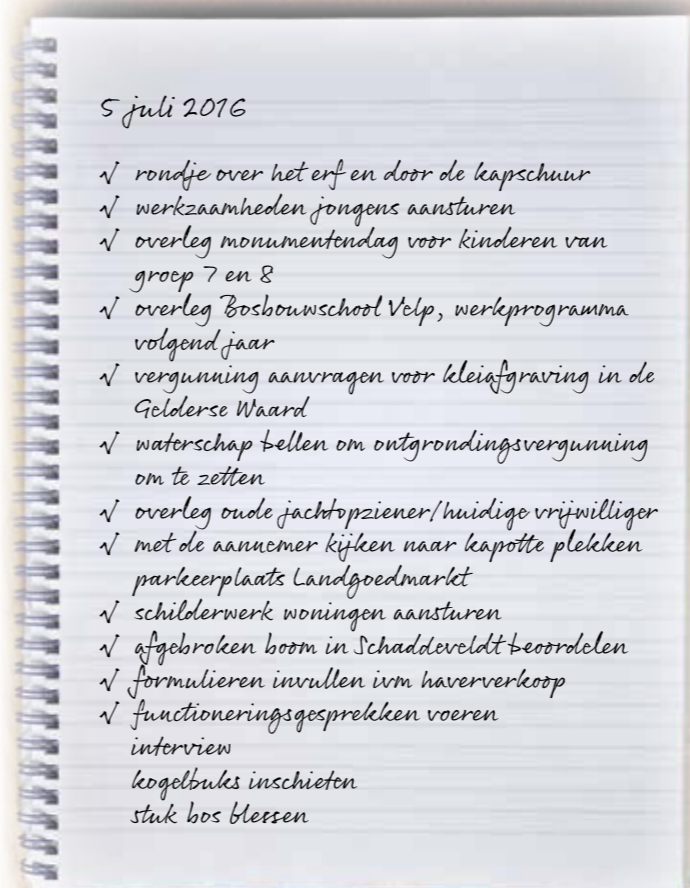 5 juli 2016
√ rondje over het erf en door de kapschuur
√ werkzaamheden jongens aansturen
√ overleg monumentendag voor kinderen van
groep 7 en 8
√ overleg Bosbouwschool Velp, werkprogramma
volgend jaar
√ vergunning aanvragen voor kleiafgraving in de
Gelderse Waard
√ waterschap bellen om ontgrondingsvergunning
om te zetten
√ overleg oude jachtopziener/huidige vrijwilliger
√ met de aannemer kijken naar kapotte plekken
parkeerplaats Landgoedmarkt
√ schilderwerk woningen aansturen
√ afgebroken boom in Schaddeveldt beoordelen
√ formulieren invullen ivm haververkoop
√ functioneringsgesprekken voeren
interview
kogelbuks inschieten
stuk bos blessen